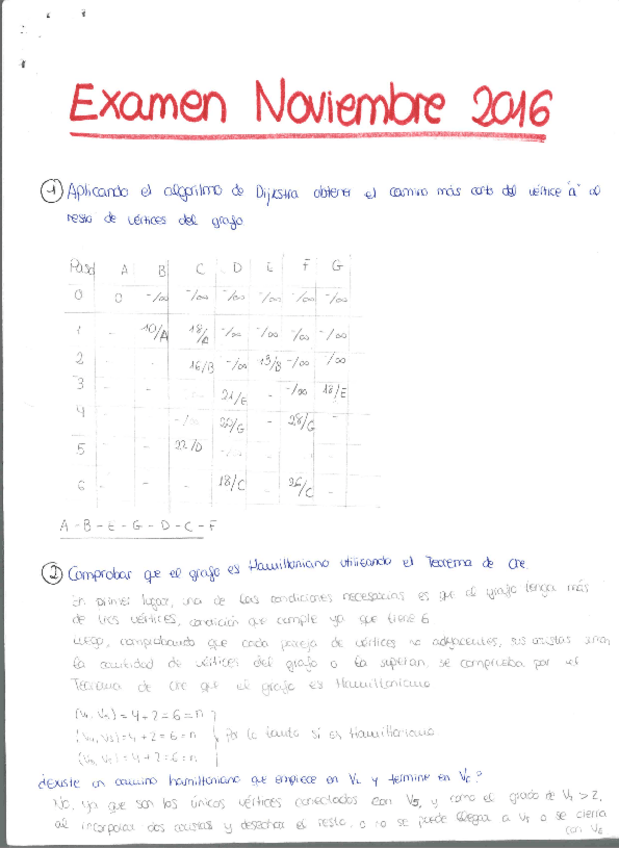 Examen Noviembre 2016
① Aplicando el algoritmo de Dijkstra obtener el camino más corto del vértice "a" al
resto de vértices del grafo
Paso A B C D E F G
0 0 -/∞ -/∞ -/∞ -/∞ -/∞ -/∞
1 - 10/A 18/A -/∞ -/∞ -/∞ -/∞
2 - - 16/B -/∞ 13/B -/∞ -/∞
3 - - - 21/E - -/∞ 18/E
4 -/∞ /G - 28/G -
5 - - 22/D
6 - - - 18/C - 26/C -
A - B - E - G - D - C - F
② Comprobar que el grafo es Hamiltoniano utilizando el Teorema de Ore
En primer lugar, una de las condiciones necesarias es que el grafo tenga más
de tres vértices, condición que cumple ya que tiene 6
Luego, comprobando que cada pareja de vértices no adyacentes, sus aristas suman
la cantidad de vértices del grafo o la superan, se comprueba por el
Teorema de Ore que el grafo es Hamiltoniano
= 4 + 2 = 6 = n
= 4 + 2 = 6 = n Por lo tanto si es Hamiltoniano
= 4 + 2 = 6 = n
¿Existe un camino hamiltoniano que empiece en y termine en ?
No, ya que son los únicos vértices conectados con V5, y como el grado de > 2,
al incorporar dos aristas y desechar el resto, o no se puede llegar a o se cierra
con V6